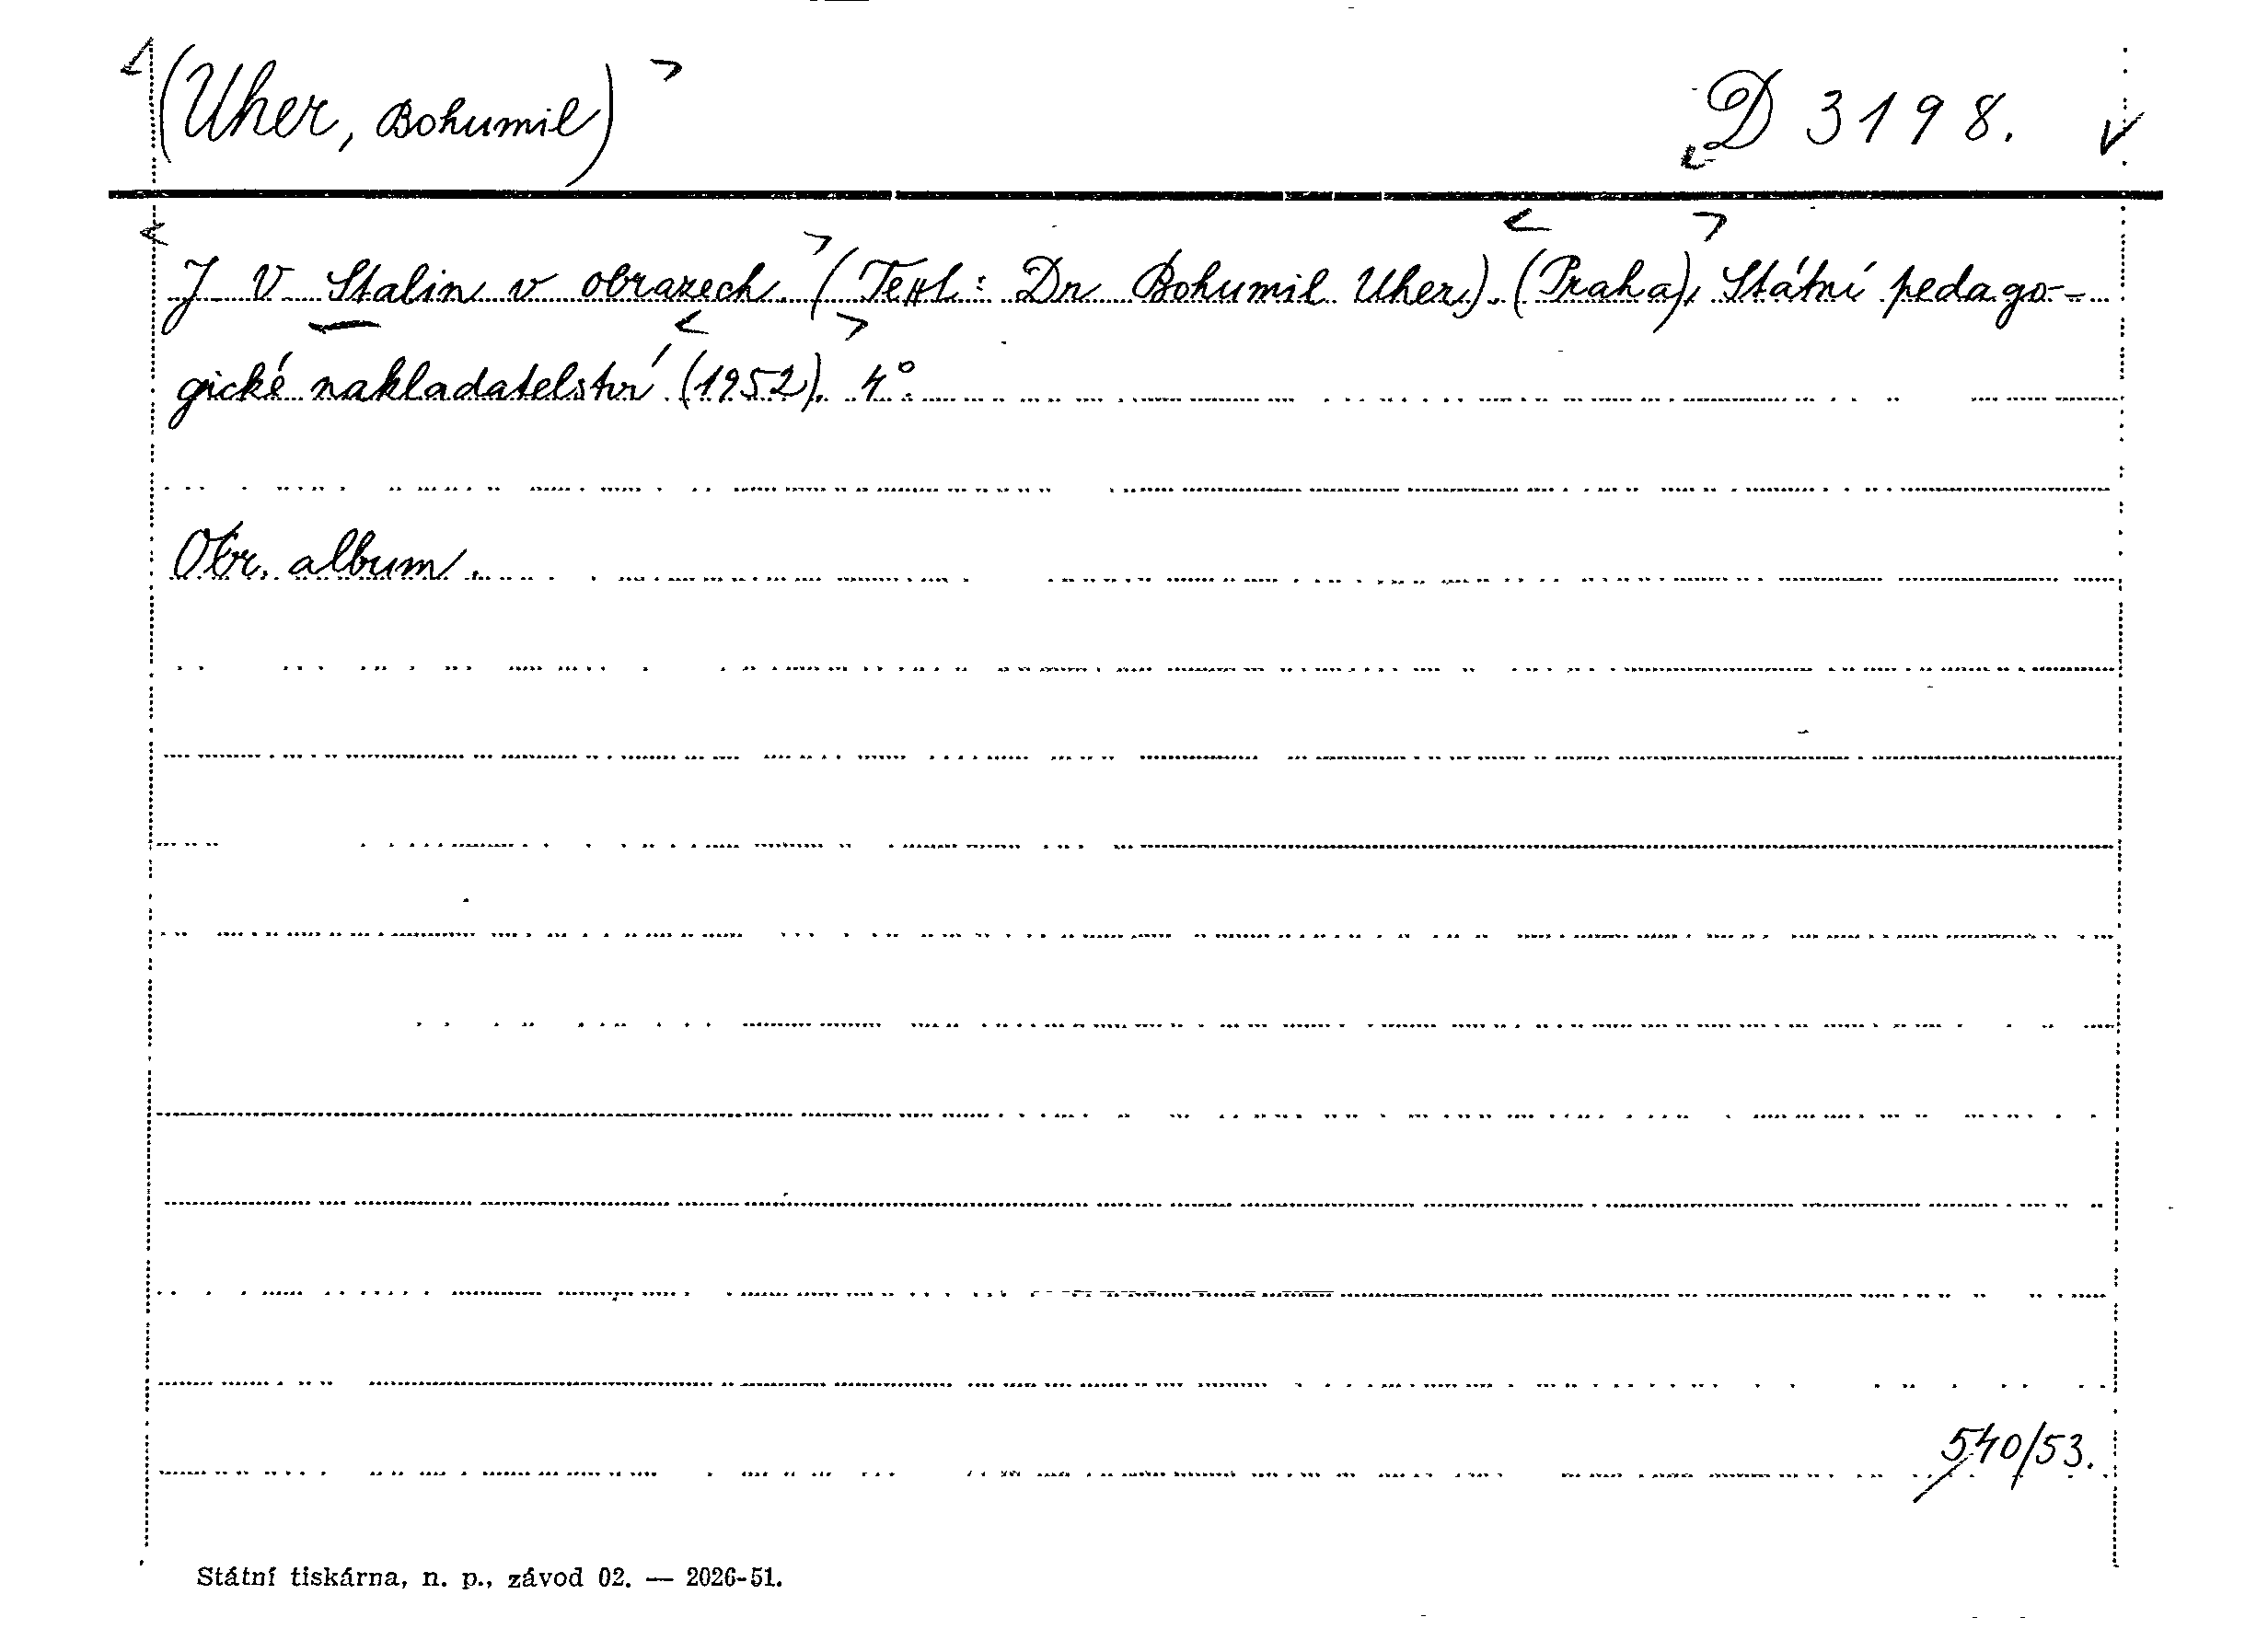 (Uher, Bohumil)
D 3198.
J V Stalin v obrazech. (Text: Dr Bohumil Uher). (Praha), Státní pedago-
gické nakladatelství (1952). 4°.
Obr. album.
540/53.
Státní tiskárna, n. p., závod 02. — 2026-51.